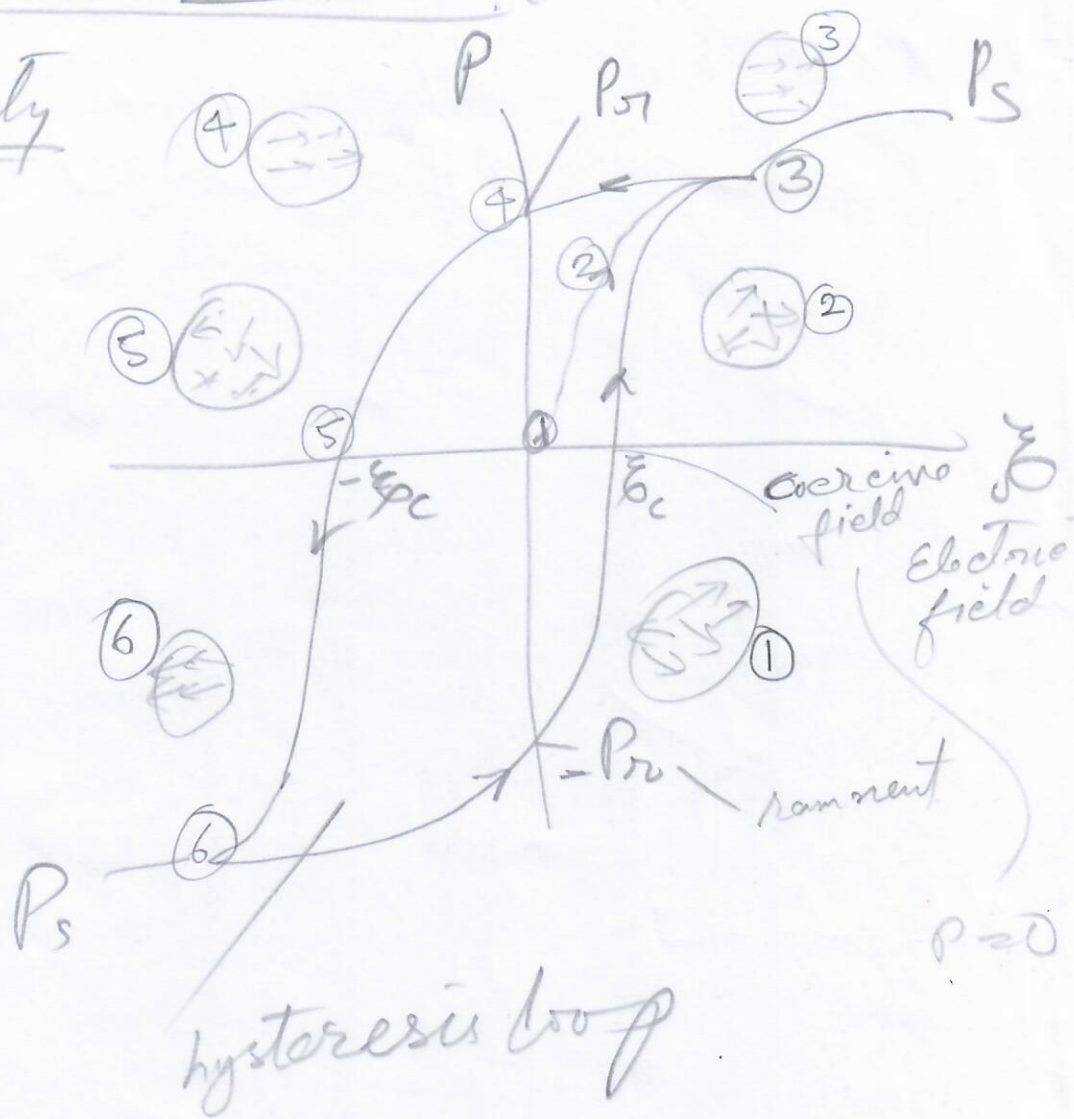 ty
P
Pr
③
Ps
④
③
④
②
⑤
②
⑤
①
-ξc
ξc
coercive
field
ξ
Electric
field
⑥
①
-Pr
ramnent
⑥
Ps
P=0
hysteresis loop